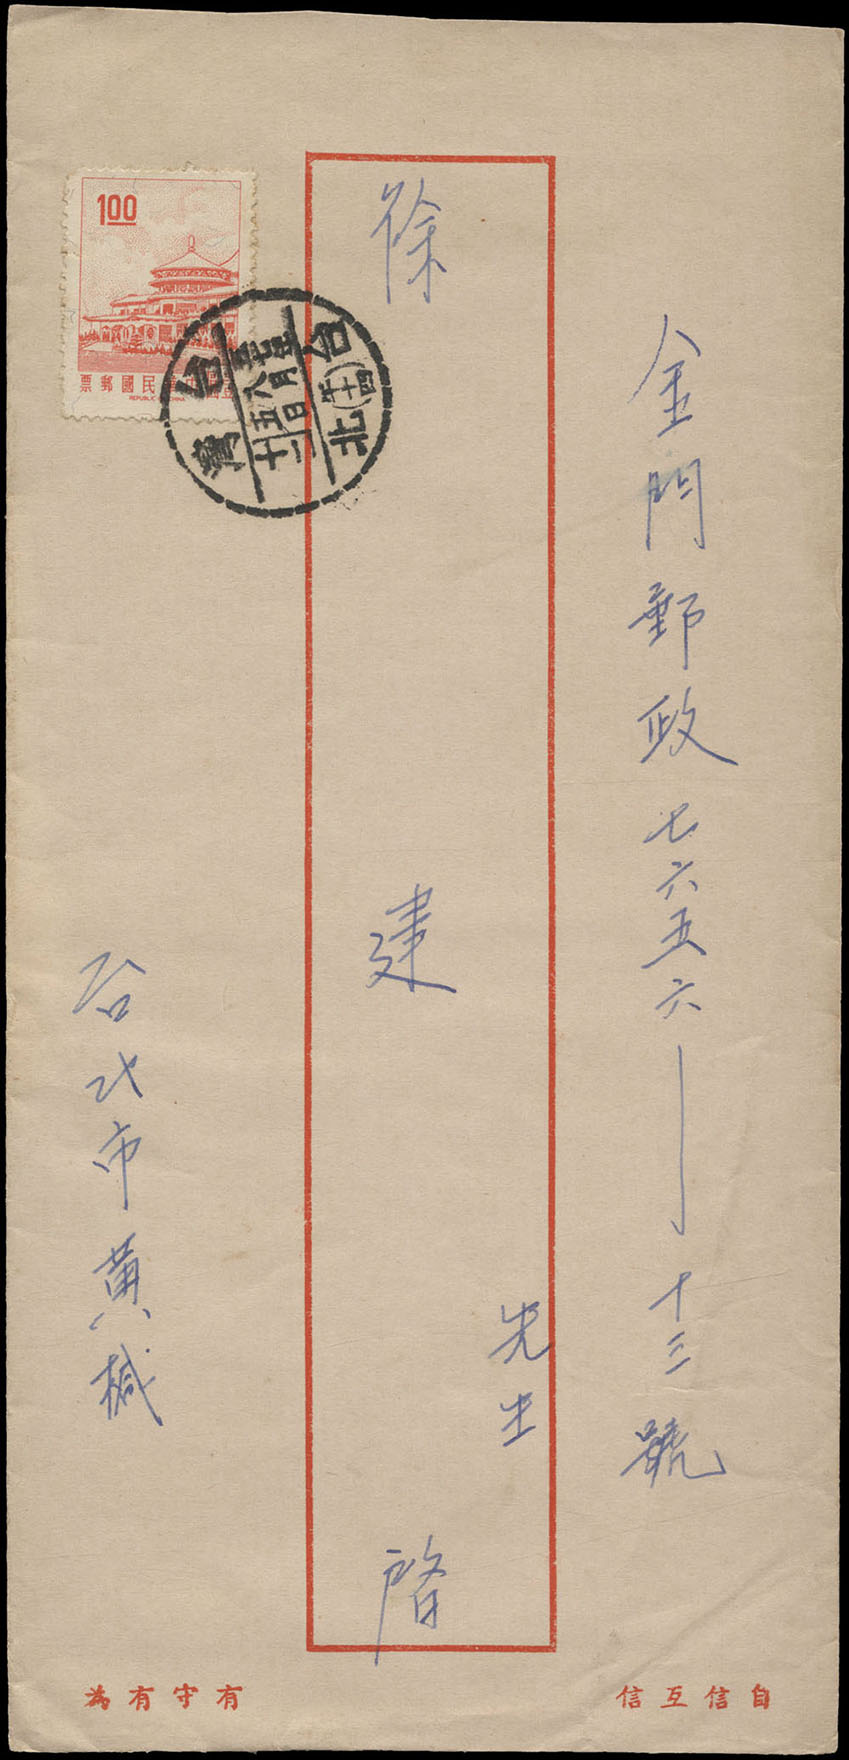 金門郵政七六五六——十三號
徐建先生啓
台北市黃椷
1.00
票郵國民華中
REPUBLIC OF CHINA
台灣
五七年八月五日
十二
台北(十四)
自信互信
有守有為